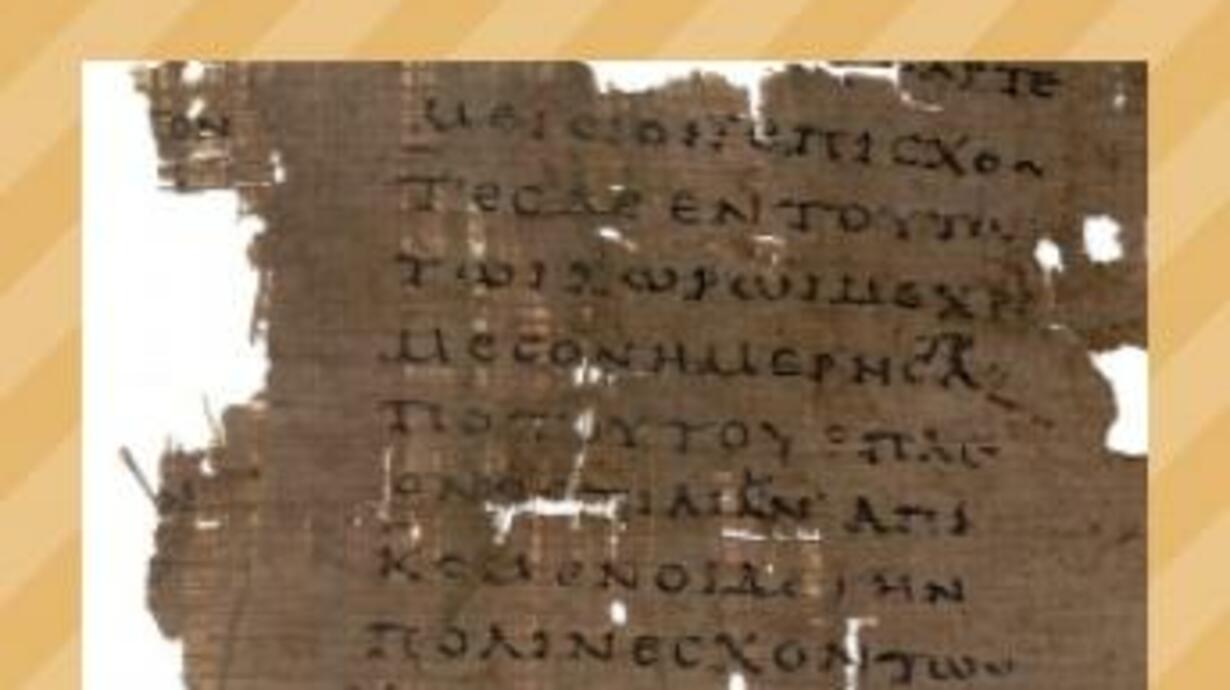 ΑΡΤΕ
ΟΝ ΜΕΙϹΙΟΝ ΕΠΙϹΧΟΝ
ΤΕϹ ΔΕ ΕΝ ΤΟΥΤΩ
ΤΩΙ ΧΩΡΩΙ ΜΕΧΡΙ
ΜΕϹΟΝ ΗΜΕΡΗϹ
ΠΟ ΤΟΥΤΟΥ ΕΠΛΕ
ΑΠΙ
ΚΟΜΕΝΟΙ ΔΕ ΤΗΝ
ΠΟΛΙΝ ΕϹΧΟΝ ΤΩΝ